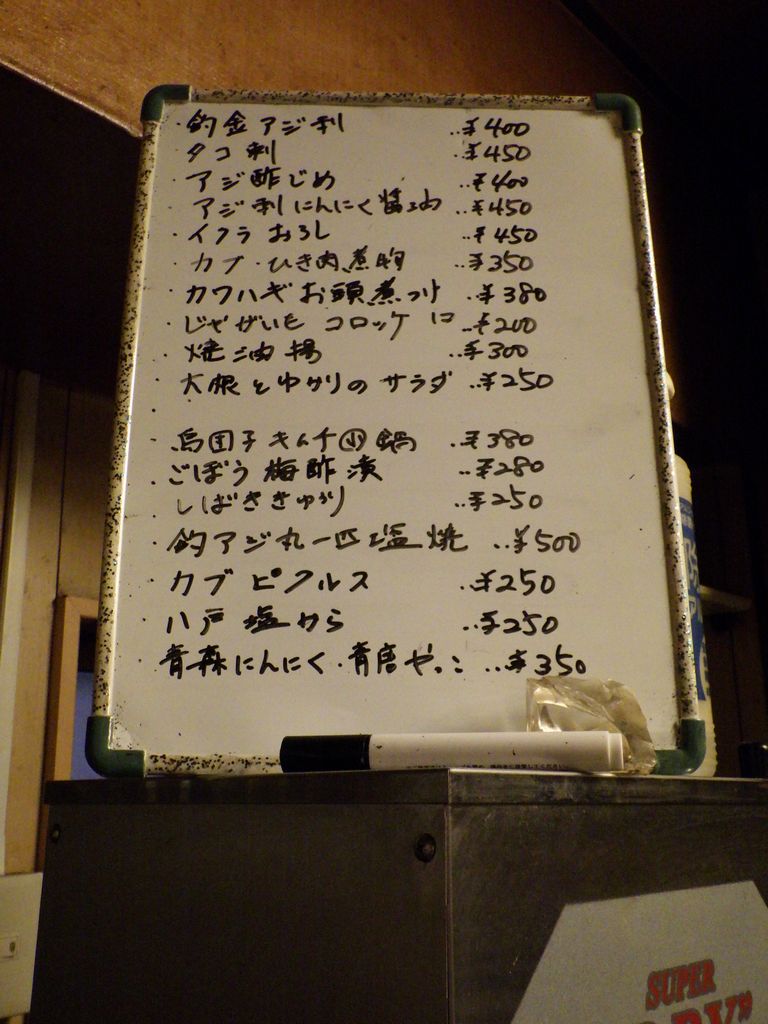 ・釣金アジ刺 ..¥400
・タコ刺 ..¥450
・アジ酢じめ ..¥400
・アジ刺にんにく醤油 ..¥450
・イクラおろし ..¥450
・カブ・ひき肉煮物 ..¥350
・カワハギお頭煮つけ ..¥380
・じゃがいもコロッケ 1コ ..¥200
・焼油揚 ..¥300
・大根とゆかりのサラダ ..¥250
・鳥団子キムチ小鍋 ..¥380
・ごぼう梅酢漬 ..¥280
・しばききゅうり ..¥250
・釣アジ丸一匹塩焼 ..¥500
・カブピクルス ..¥250
・八戸塩から ..¥250
・青森にんにく・青唐やっこ ..¥350
SUPER